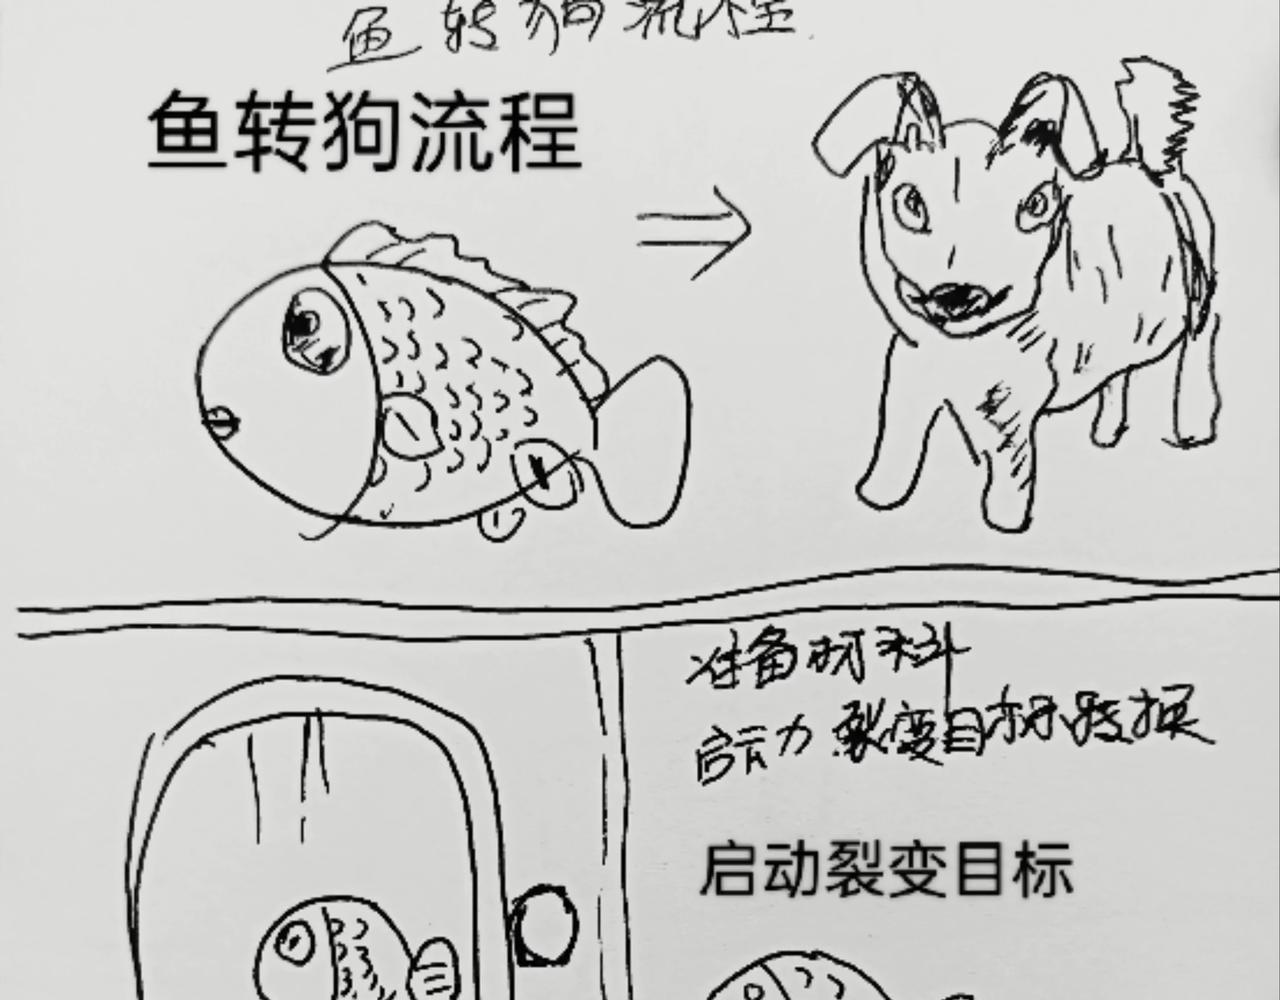 鱼转狗流程
鱼转狗流程
准备材料
启动裂变目标转换
启动裂变目标